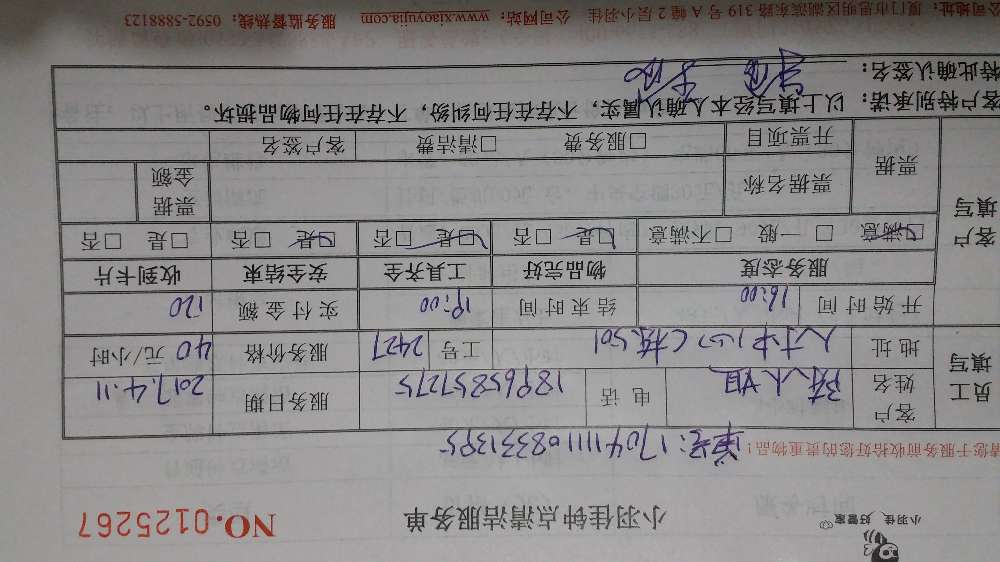 小羽佳 好管家
小羽佳钟点清洁服务单 NO.0125267
请您于服务前收拾好您的贵重物品!
单号:1704111108331395
员工填写 客户姓名 陈大姐 电话 18965857275 服务日期 2017.4.11
地址 人才中心C栋501 工号 2427 服务价格 40 元/小时
开始时间 16:00 结束时间 19:00 实付金额 120
客户填写 服务态度 物品完好 工具齐全 安全结束 收到卡片
☑满意 □一般 □不满意 ☑是 □否 ☑是 □否 ☑是 □否 □是 □否
票据 票据名称 票据金额
开票项目 □服务费 □清洁费 客户签名
客户特别承诺:以上填写本人确认属实,不存在任何纠纷,不存在任何物品损坏。
特此确认签名:
公司地址:厦门市思明区湖滨东路319号A幢2层小羽佳 公司网站:www.xiaoyujia.com 服务监督热线:0592-5888123